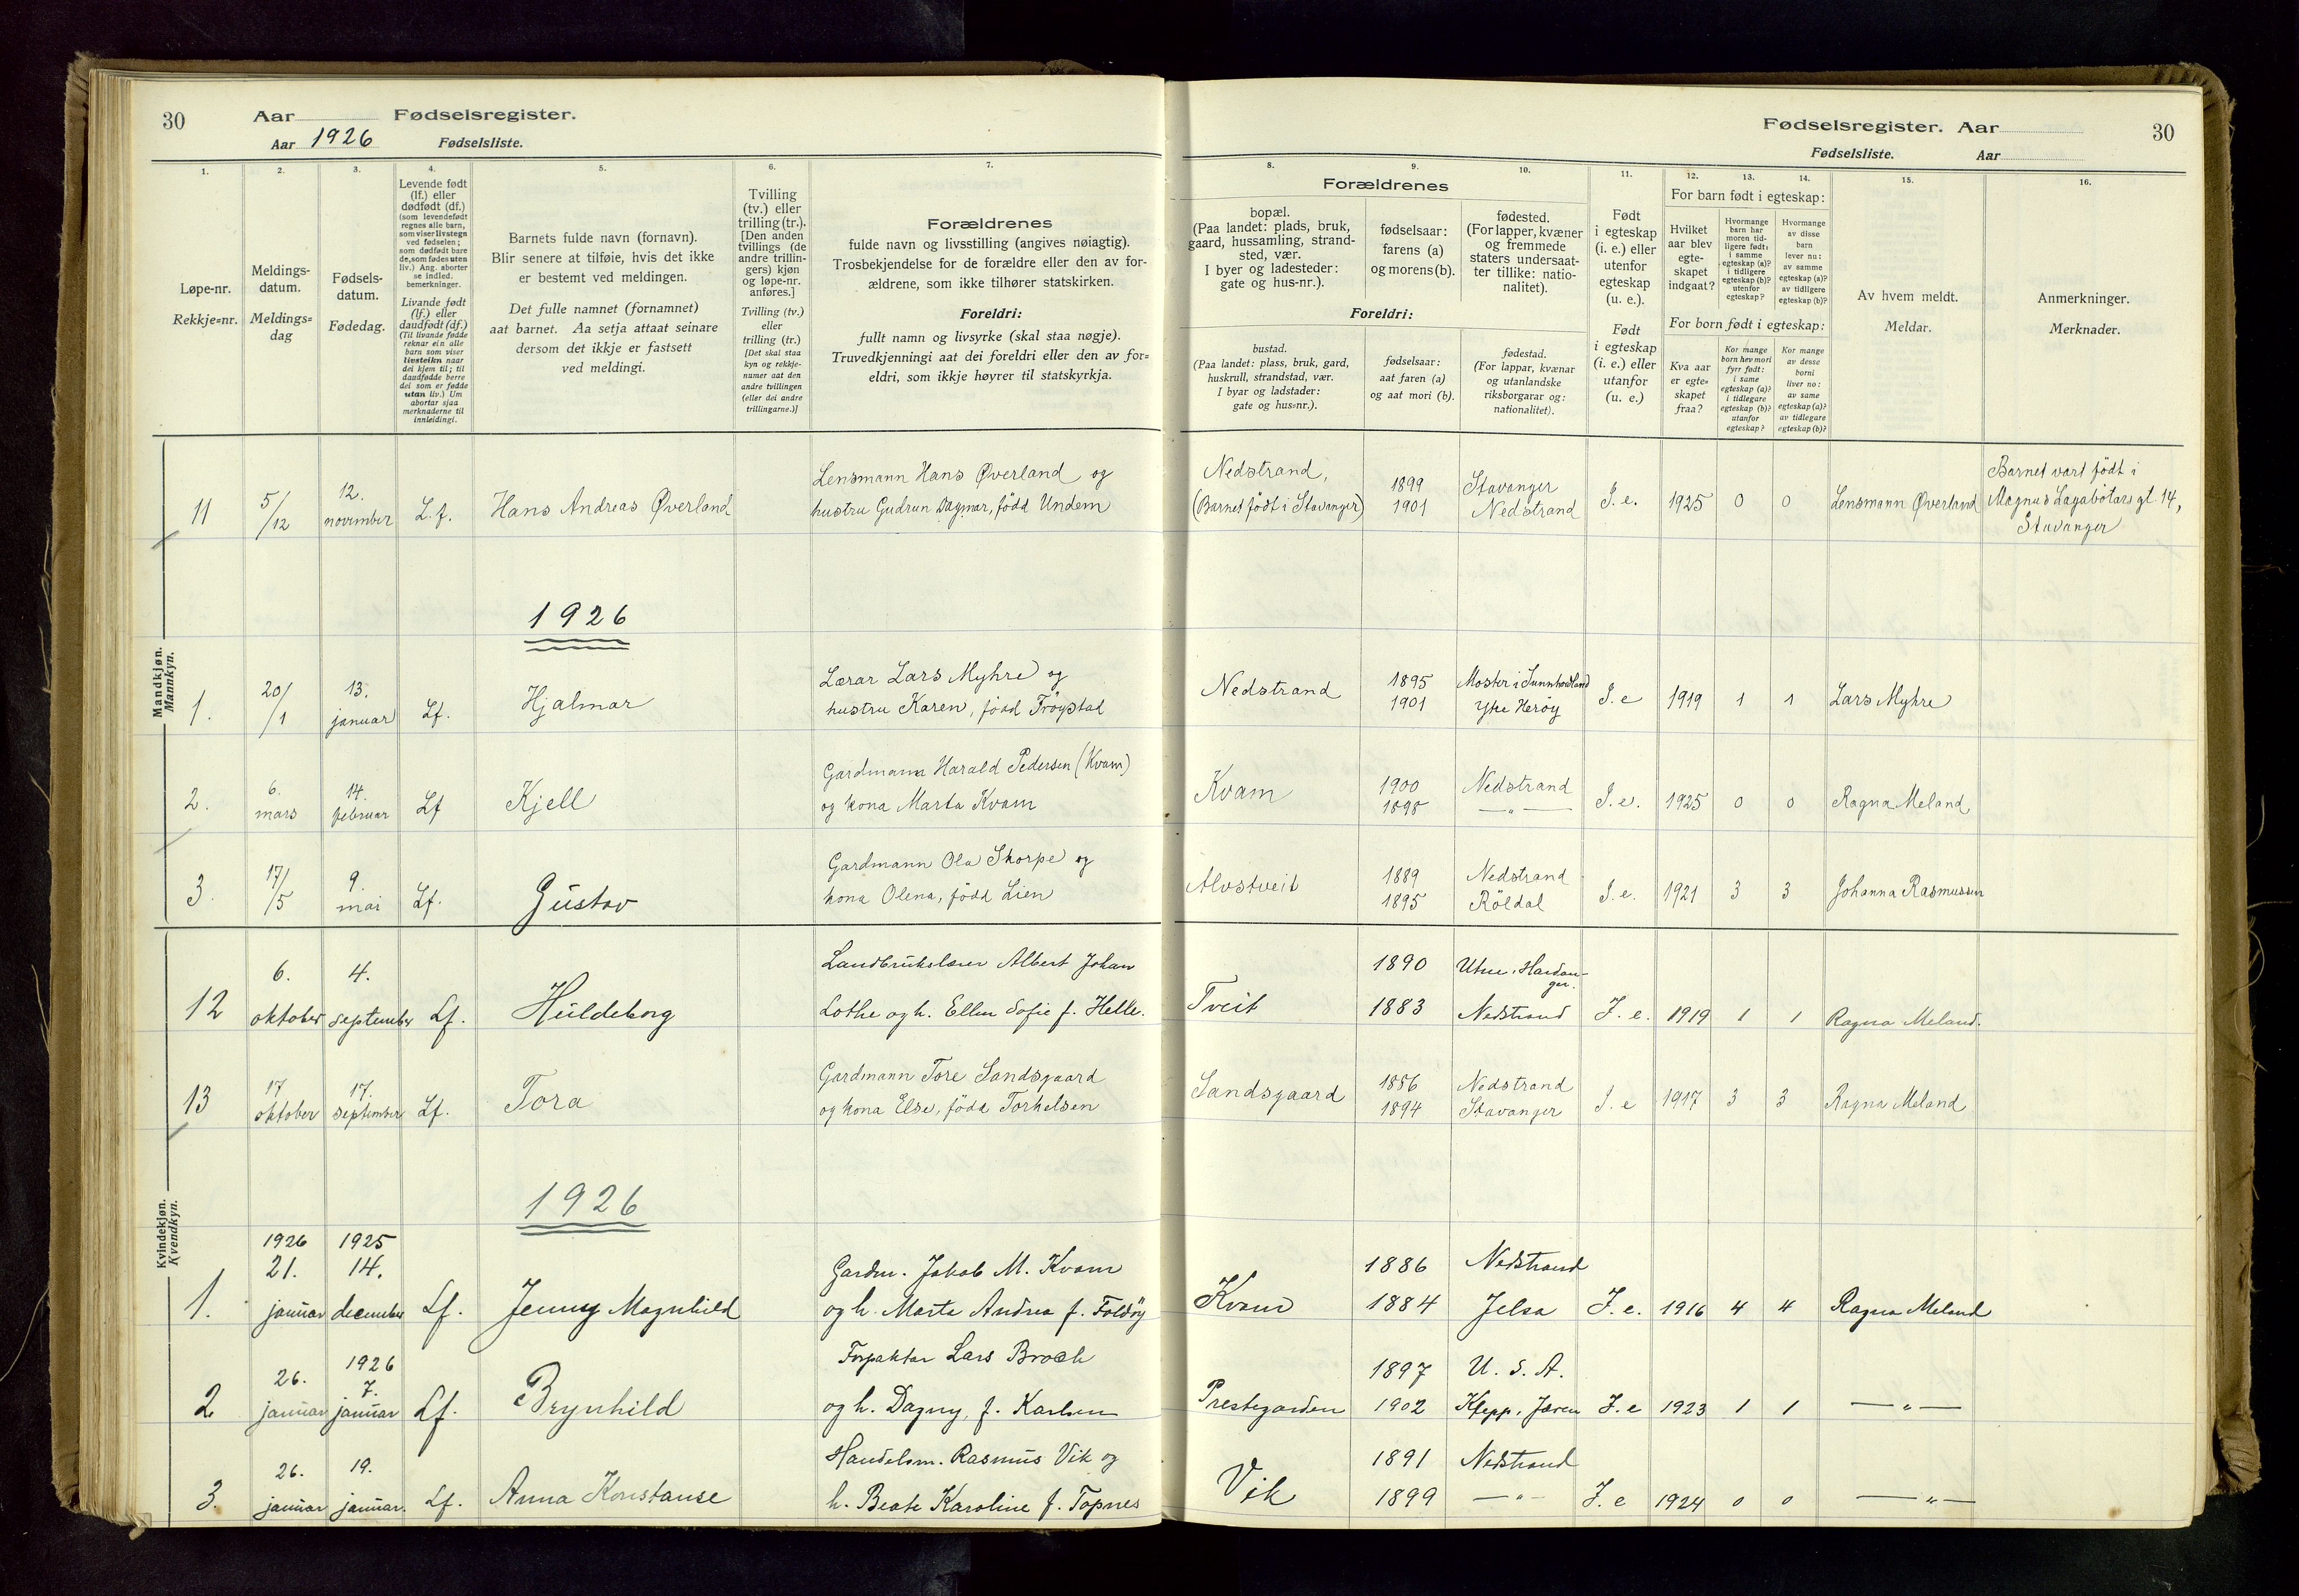 30
Aar
Fødselsregister.
Aar 1926
Fødselsliste.
Fødselsregister. Aar
30
Fødselsliste.
Aar
1.
Løpe-nr.
Rekkje=nr.
2.
Meldings-
datum.
Meldings=
dag
3.
Fødsels-
datum.
Fødedag.
4.
Levende født
(lf.) eller
dødfødt (df.)
(som levendefødt
regnes alle barn,
som viser livstegn
ved fødselen;
som dødfødt bare
de, som fødes uten
liv.) Ang. aborter
se indled.
bemerkninger.
Livande født
(lf.) eller
daudfødt (df.)
(Til livande fødde
reknar ein alle
barn som viser
livsteikn naar
dei kjem til; til
daudfødde berre
dei som er fødde
utan liv.) Um
abortar sjaa
merknaderne til
innleidingi.
5.
Barnets fulde navn (fornavn).
Blir senere at tilføie, hvis det ikke
er bestemt ved meldingen.
Det fulle namnet (fornamnet)
aat barnet. Aa setja attaat seinare
dersom det ikkje er fastsett
ved meldingi.
6.
Tvilling
(tv.) eller
trilling (tr.).
[Den anden
tvillings (de
andre trillin-
gers) kjøn
og løpe-nr.
anføres.]
Tvilling (tv.)
eller
trilling (tr.)
[Det skal staa
kyn og rekkje-
numer aat den
andre tvillingen
(eller dei andre
trillingarne.)]
7.
Forældrenes
fulde navn og livsstilling (angives nøiagtig).
Trosbekjendelse for de forældre eller den av for-
ældrene, som ikke tilhører statskirken.
Foreldri:
fullt namn og livsyrke (skal staa nøgje).
Truvedkjenningi aat dei foreldri eller den av for=
eldri, som ikkje høyrer til statskyrkja.
8.
Forældrenes
bopæl.
(Paa landet: plads, bruk,
gaard, hussamling, strand-
sted, vær.
I byer og ladesteder:
gate og hus-nr.).
Foreldri:
bustad.
(Paa landet: plass, bruk, gard,
huskrull, strandstad, vær.
I byar og ladstader:
gate og hus=nr.).
9.
fødselsaar:
farens (a)
og morens (b).
fødselsaar:
aat faren (a)
og aat mori (b).
10.
fødested.
(For lapper, kvæner
og fremmede
staters undersaat-
ter tillike: natio-
nalitet).
fødestad.
(For lappar, kvænar
og utanlandske
riksborgarar og:
nationalitet).
11.
Født
i egteskap
(i. e.) eller
utenfor
egteskap
(u. e.).
Født
i egteskap
(i. e.) eller
utanfor
(u. e.)
For barn født i egteskap:
12.
Hvilket
aar blev
egte-
skapet
indgaat?
For born født i egteskap:
Kva aar
er egte=
skapet
fraa?
13.
Hvormange
barn har
moren tid-
ligere født:
i samme
egteskap (a)?
i tidligere
egteskap (b)?
utenfor
egteskap?
Kor mange
born hev mori
fyrr født:
i same
egteskap (a)?
i tidlegare
egteskap (b)?
utanfor
egteskap?
14.
Hvormange
av disse
barn
lever nu:
av samme
egteskap (a)?
av tidligere
egteskap (b)?
Kor mange
av desse
borni
liver no:
av same
egteskap (a)?
av tidlegare
egteskap (b)?
15.
Av hvem meldt.
Meldar.
16.
Anmerkninger.
Merknader.
Mandkjøn.
Mannkyn.
11
5/12
12.
november
L.f.
Hans Andreas Øverland
Lensmann Hans Øverland og
hustru Gudrun Dagmar, född Undem
Nedstrand,
(Barnet födt i Stavanger)
1899
1901
Stavanger
Nedstrand
I. e.
1925
0
0
Lensmann Øverland
Barnet vart födt i
Magnus Lagabøtars gt 14,
Stavanger
1926
1.
20/1
13.
januar
Lf.
Hjalmar
Lærar Lars Myhre og
hustru Karen, född Tröystad
Nedstrand
1895
1901
Moster i Sunnhordland
Ytre Heröy
I. e
1919
1
1
Lars Myhre
2.
6.
mars
14.
februar
Lf
Kjell
Gardmann Harald Pedersen (Kvam)
og kona Marta Kvam
Kvam
1900
1898
Nedstrand
— " —
I. e.
1925
0
0
Ragna Meland
3.
17/5
9.
mai
Lf.
Gustav
Gardmann Ola Skorpe og
kona Olena, född Lien
Alvstveit
1889
1895
Nedstrand
Röldal
I. e.
1921
3
3
Johanna Rasmussen
Kvindekjøn.
Kvendkyn.
12
6.
oktober
4.
september
Lf.
Huldeborg
Landbrukslærer Albert Johan
Lothe og h. Ellen Sofie f. Helle.
Tveit
1890
1883
Utne, Hardan-
ger.
Nedstrand
I. e.
1919
1
1
Ragna Meland.
13
17
oktober
17.
september
Lf.
Tora
Gardmann Tore Sandsgaard
og kona Else, född Torkelsen
Sandsgaard
1886
1894
Nedstrand
Stavanger
I. e
1917
3
3
Ragna Meland
1926
1.
1926
21.
januar
1925
14.
december
Lf.
Jenny Magnhild
Gardm. Jakob M. Kvam
og h. Marta Andrea f. Foldöy
Kvam
1886
1884
Nedstrand
Jelsa
I. e.
1916
4
4
Ragna Meland
2
26.
januar
1926
7.
januar
Lf.
Brynhild
Forpaktar Lars Broch
og h. Dagny, f. Karlsen
Prestegarden
1897
1902
U. S. A.
Klepp, Jæren
I. e
1923
1
1
— " —
3.
26.
januar
19.
januar.
Lf.
Anna Konstanse
Handelsm. Rasmus Vik og
h. Beate Karoline f. Tapnes
Vik
1891
1899
Nedstrand
— " —
I. e
1924
0
0
— " —